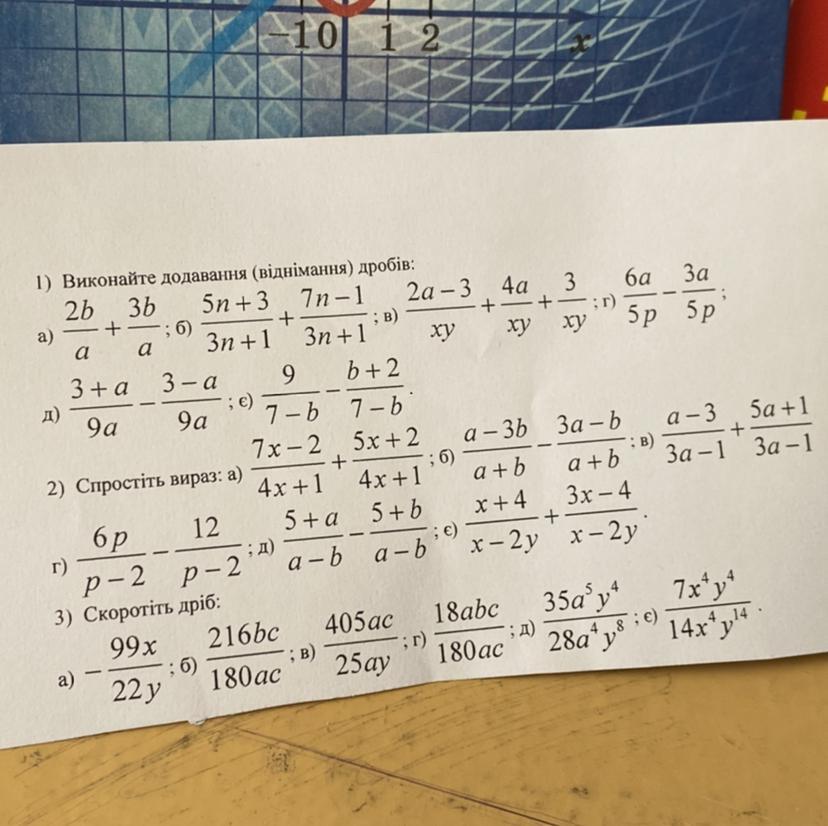 −1 0 1 2 x
1) Виконайте додавання (віднімання) дробів:
а) 2b/a + 3b/a ; б) (5n+3)/(3n+1) + (7n−1)/(3n+1) ; в) (2a−3)/xy + 4a/xy + 3/xy ; г) 6a/5p − 3a/5p ;
д) (3+a)/9a − (3−a)/9a ; є) 9/(7−b) − (b+2)/(7−b) .
2) Спростіть вираз: а) (7x−2)/(4x+1) + (5x+2)/(4x+1) ; б) (a−3b)/(a+b) − (3a−b)/(a+b) ; в) (a−3)/(3a−1) + (5a+1)/(3a−1)
г) 6p/(p−2) − 12/(p−2) ; д) (5+a)/(a−b) − (5+b)/(a−b) ; є) (x+4)/(x−2y) + (3x−4)/(x−2y) .
3) Скоротіть дріб:
а) − 99x/22y ; б) 216bc/180ac ; в) 405ac/25ay ; г) 18abc/180ac ; д) 35a⁵y⁴/28a⁴y⁸ ; є) 7x⁴y⁴/14x⁴y¹⁴ .